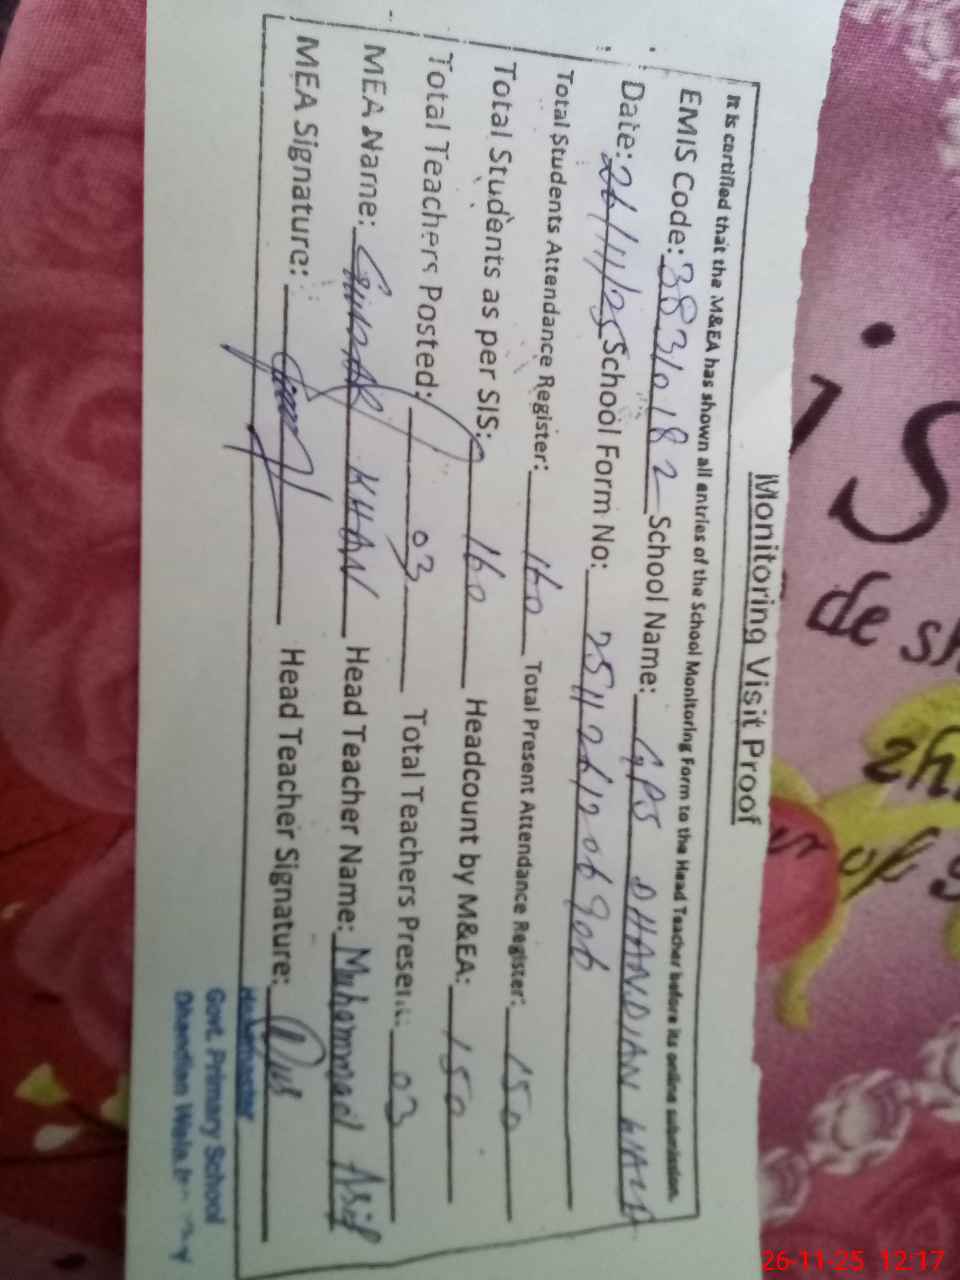 Monitoring Visit Proof
It is certified that the M&EA has shown all entries of the School Monitoring Form to the Head Teacher before its online submission.
EMIS Code: 38310182 School Name: GPS DHANDIAN WALA
Date: 26/11/25 School Form No: 2511261206906
Total Students Attendance Register: 160 Total Present Attendance Register: 150
Total Students as per SIS: 160 Headcount by M&EA: 150
Total Teachers Posted: 03 Total Teachers Present: 03
MEA Name: KHAN Head Teacher Name: Muhammad Asif
MEA Signature: Head Teacher Signature:
Headmaster
Govt. Primary School
Dhandian Wala
de
of
26-11-25 12:17